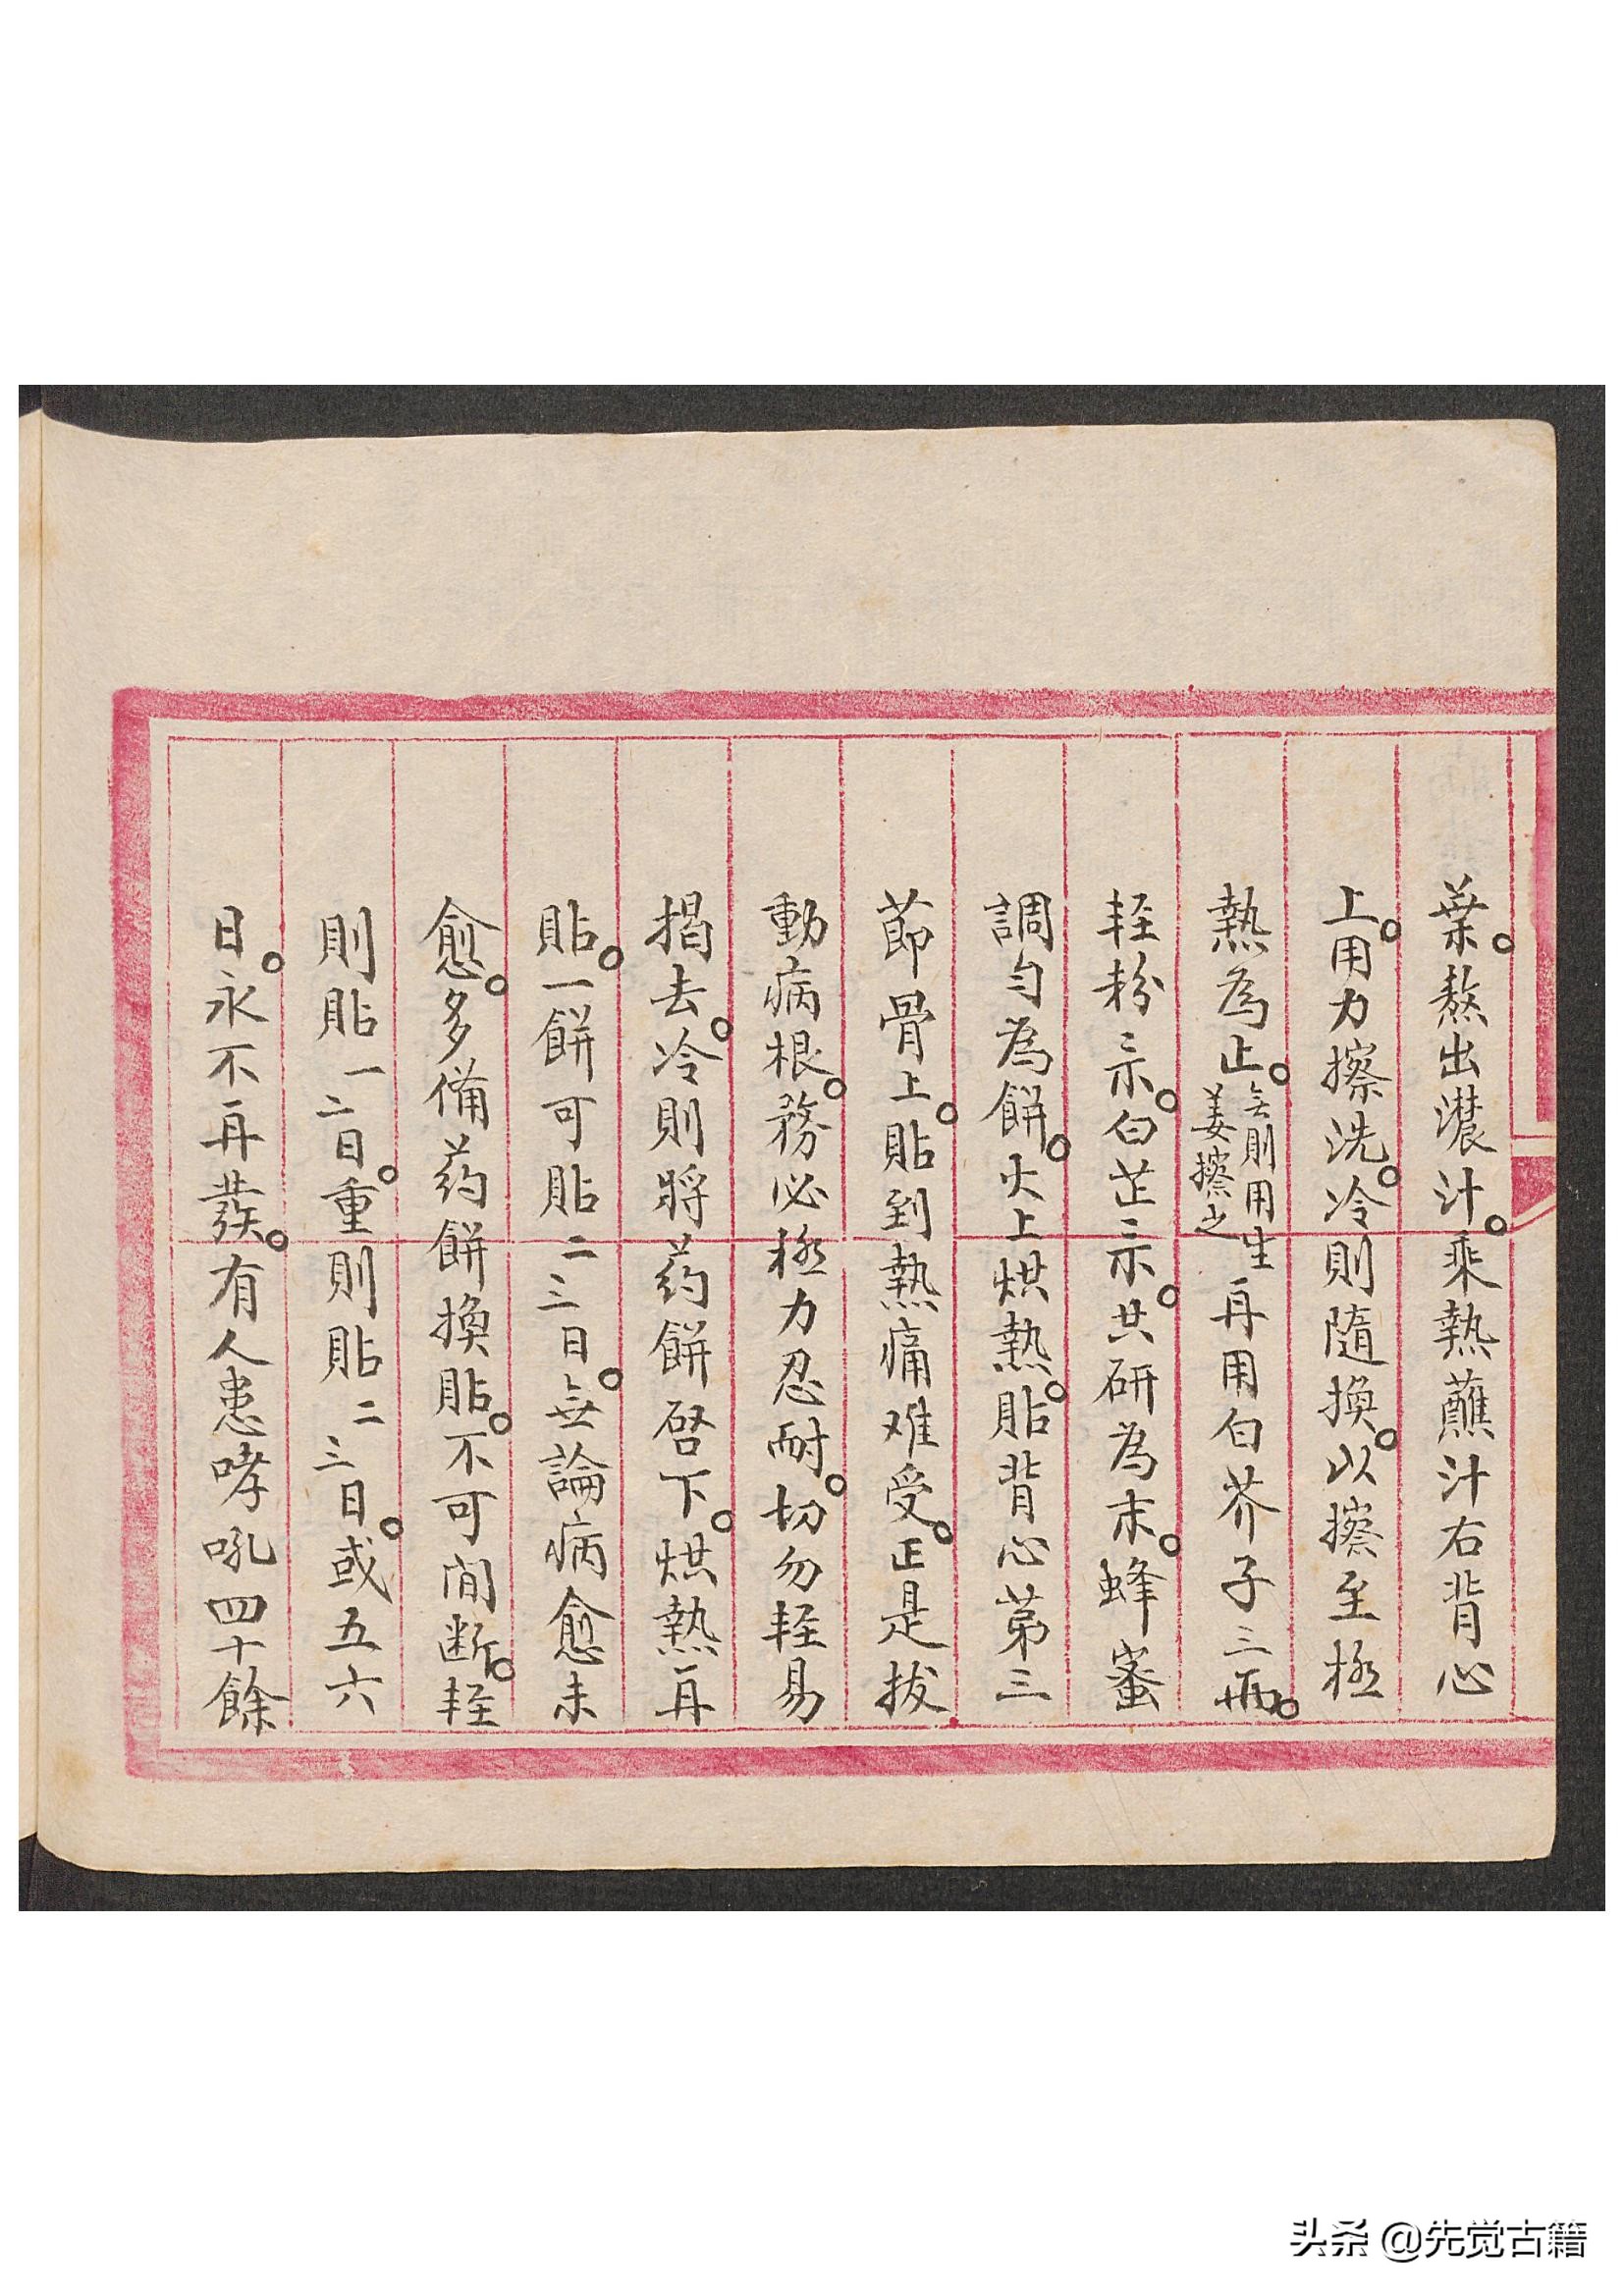 葉。熬出濃汁。乘熱蘸汁右背心
上。用力擦洗。冷則隨換。以擦至極
熱為止。无則用生姜擦之再用白芥子三兩。
軽粉三示。白芷三示。共研為末。蜂蜜
調勻為餅。火上烘熱。貼背心第三
節骨上。貼到熱痛难受。正是拔
動病根。務必極力忍耐。切勿軽易
揭去。冷則將葯餅啓下。烘熱再
貼。一餅可貼二三日。無論病愈未
愈。多俻葯餅換貼。不可間断。軽
則貼一二日。重則貼二三日。或五六
日。永不再發。有人患哮吼四十餘
头条 @先觉古籍